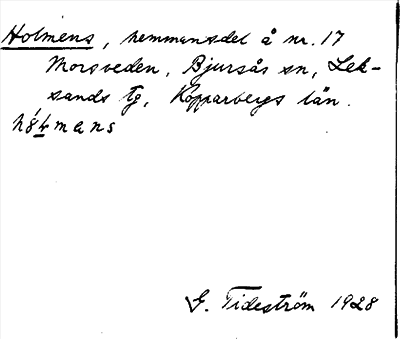 Holmens, hemmansdel å nr. 17
Morsveden, Bjursås sn, Lek-
sands tg, Kopparbergs län.
hó̱mans
G. Tideström 1928